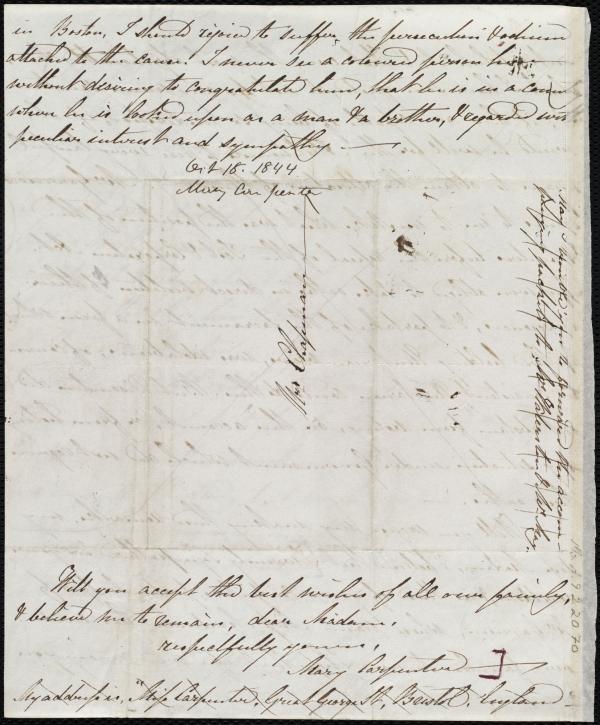 in Boston, I should rejoice to suffer the persecution & odium
attached to the cause. I never see a coloured person here
without desiring to congratulate him, that he is in a country
where he is looked upon as a man & a brother, & regarded with
peculiar interest and sympathy. —
Oct 18. 1844
Mary Carpenter
Mrs Chapman
May I trouble you to forward the accom-
panying packets to Mr & Mr May.
Will you accept the best wishes of all our family,
& believe me to remain, dear Madam,
respectfully yours,
Mary Carpenter
My address is, Miss Carpenter, Great George St, Bristol, England